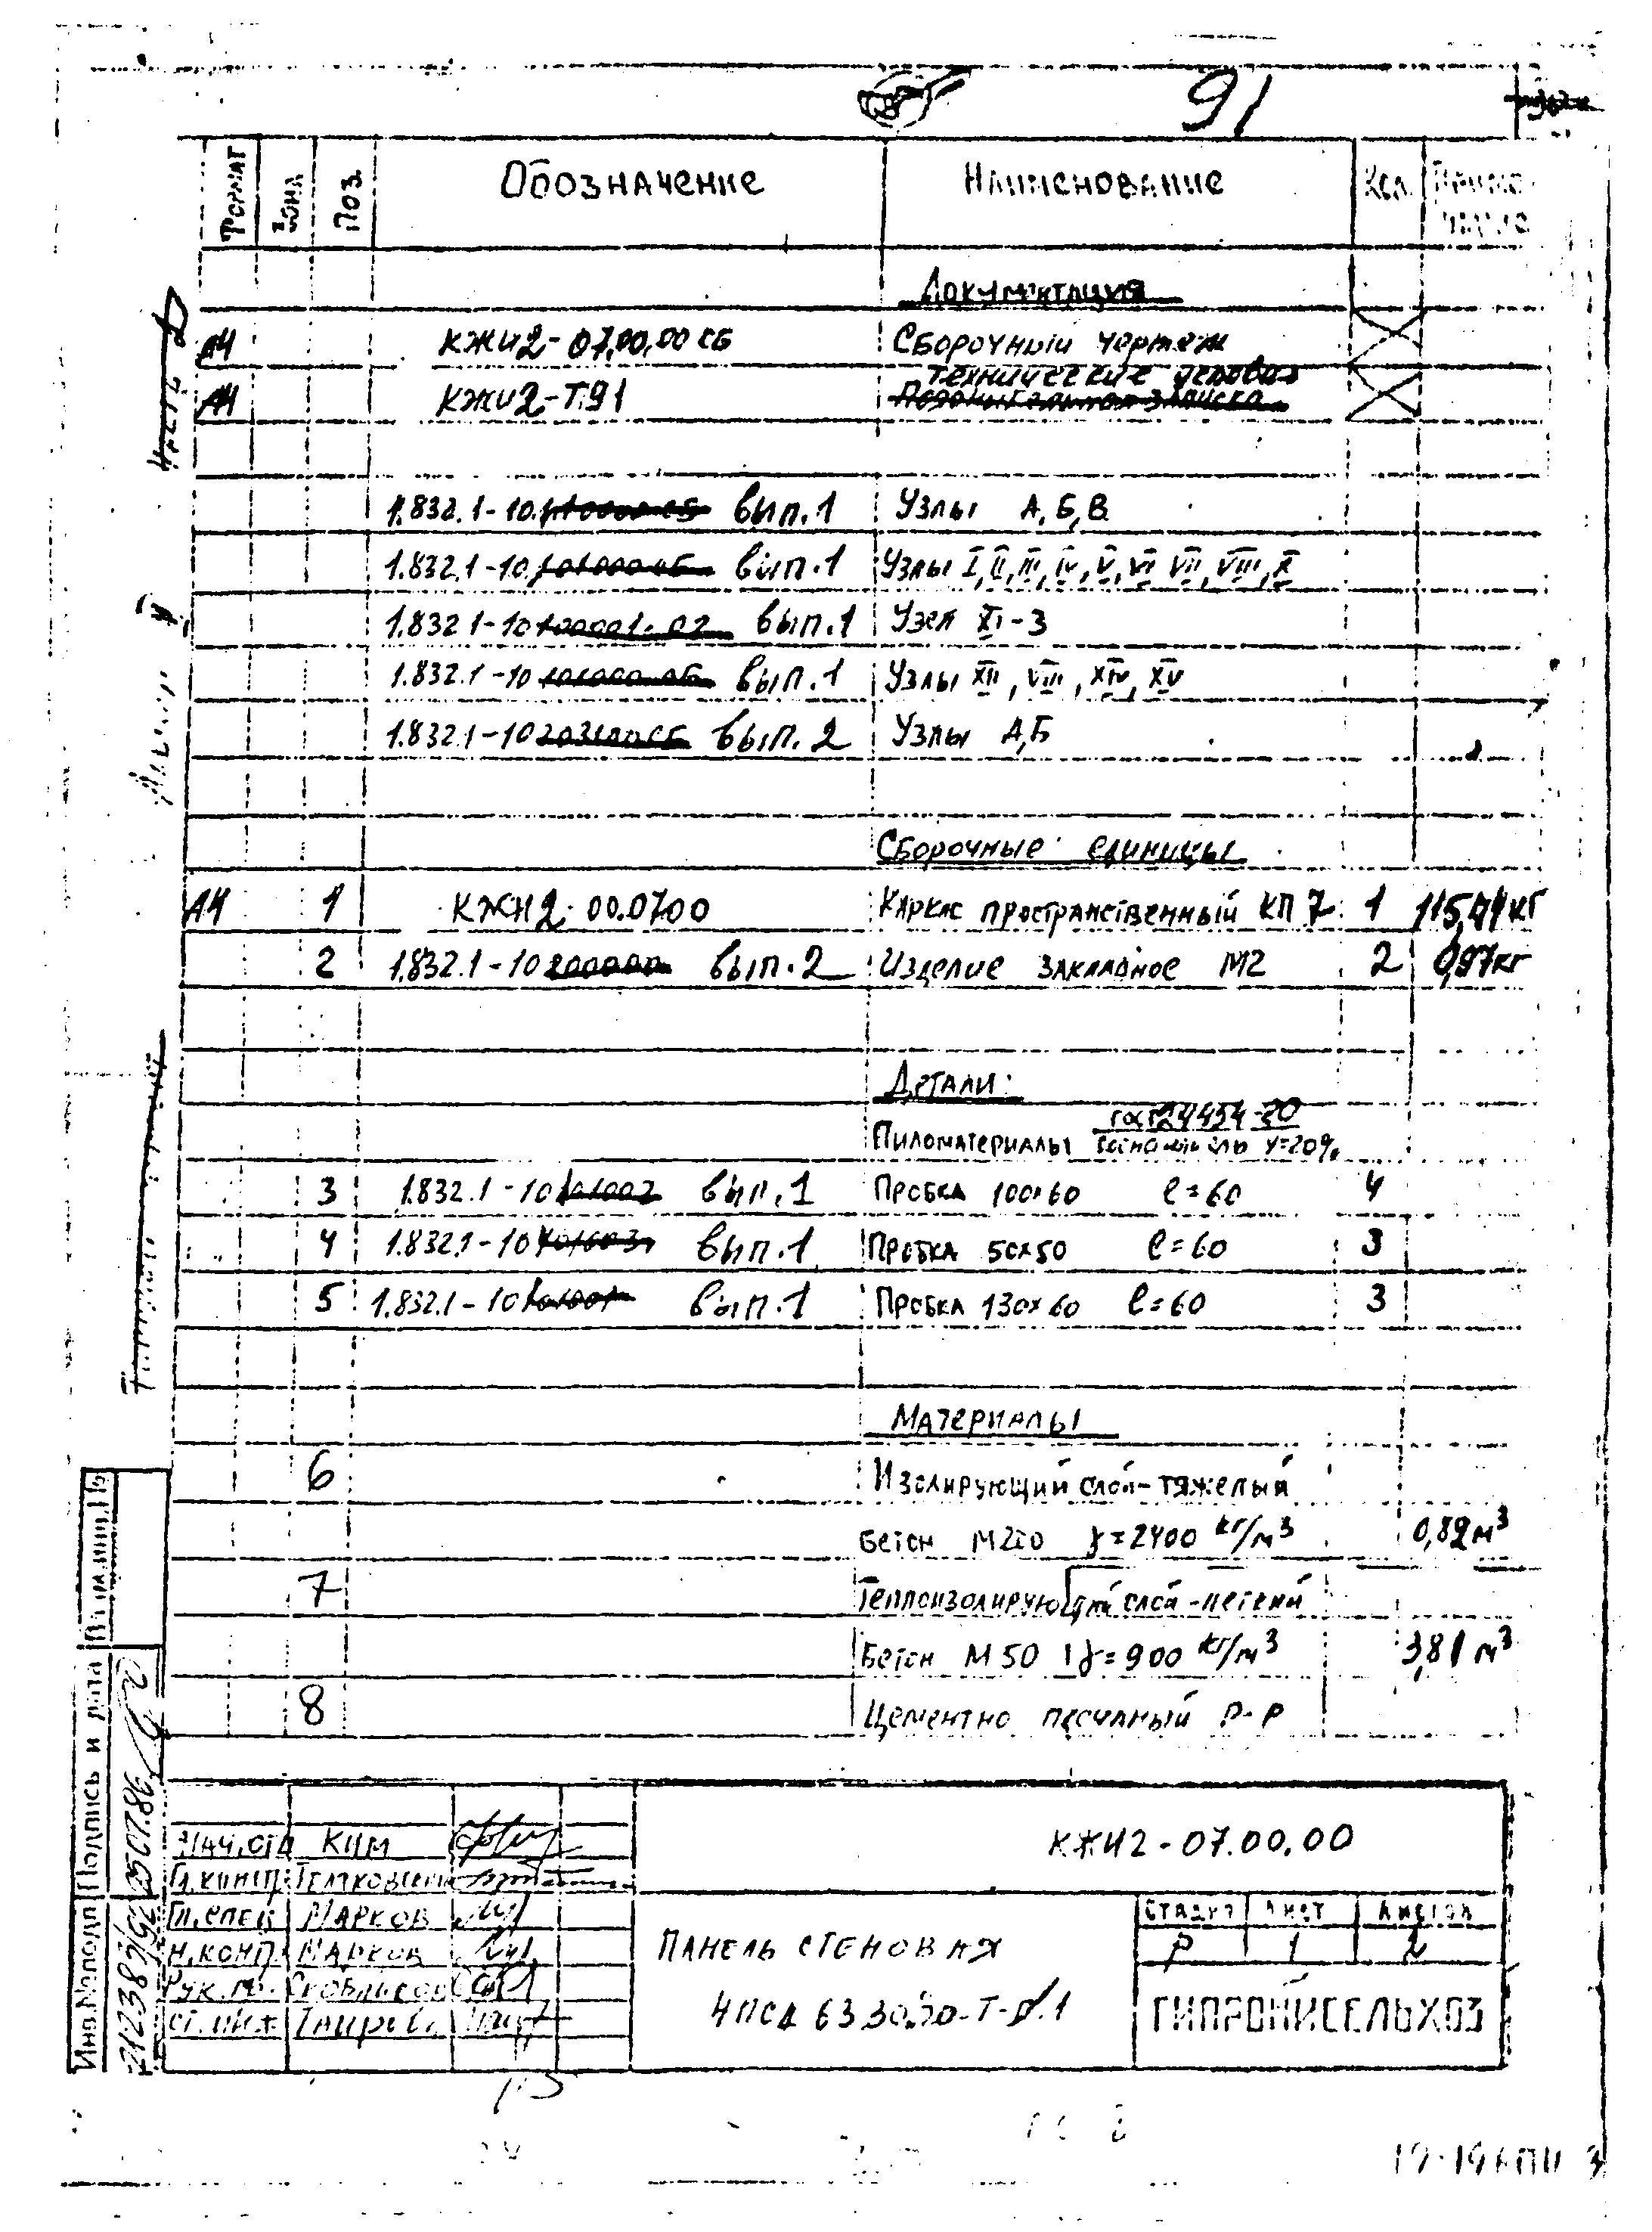 91
Формат Зона Поз. Обозначение Наименование Кол. Приме-чание
Документация
А4 КЖИ2-07.00.00 СБ Сборочный чертеж
А4 КЖИ2-Т.91 Технические условия
1.832.1-10 вып.1 Узлы А, Б, В
1.832.1-10 вып.1 Узлы I, II, III, IV, V, VI VII, VIII, X
1.832.1-10 вып.1 Узел XI-3
1.832.1-10 вып.1 Узлы XII, VIII, XIV, XV
1.832.1-10 вып.2 Узлы А, Б
Сборочные единицы
А4 1 КЖИ2.00.0700 Каркас пространственный КП 7 1 кг
2 1.832.1-10 вып.2 Изделие закладное М2 2 0,97кг
Детали:
Пиломатериалы
3 1.832.1-10 вып.1 Пробка 100×60 ℓ=60 4
4 1.832.1-10 вып.1 Пробка 50×50 ℓ=60 3
5 1.832.1-10 вып.1 Пробка 130×60 ℓ=60 3
Материалы
6 Изолирующий слой-тяжелый
бетон М200 γ=2400 кг/м³ 0,82м³
7 Теплоизолирующий слой-легкий
бетон М50 γ=900 кг/м³ 3,81 м³
8 Цементно песчаный р-р
Взам.инв.№
Подпись и дата
Инв.№подл
Нач.отд Ким
Гл.констр.
Гл.спец Марков
Н.конт. Марков
Рук.гр.
Ст.инж
КЖИ2-07.00.00
Панель стеновая
Стадия Лист Листов
Р 1 2
ГИПРОНИСЕЛЬХОЗ